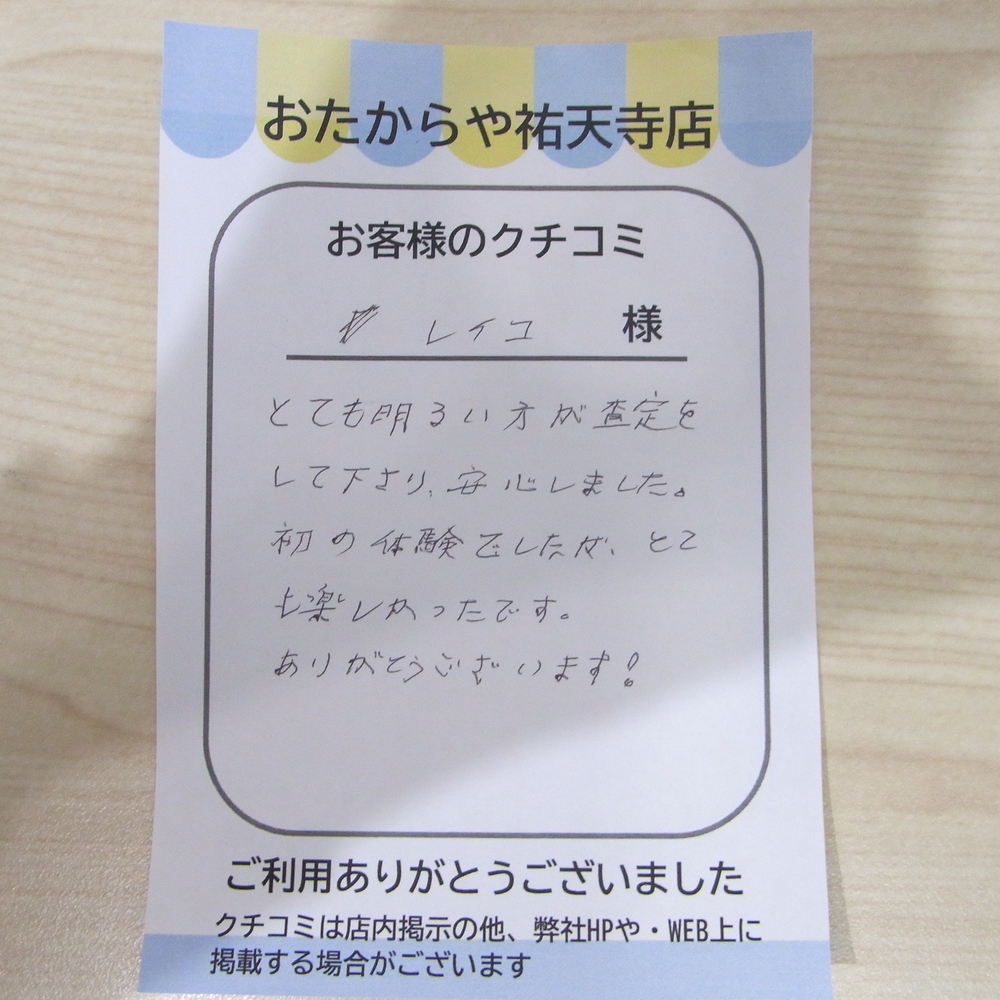 おたからや祐天寺店
お客様のクチコミ
レイコ 様
とても明るい方が査定を
して下さり、安心しました。
初の体験でしたが、とて
も楽しかったです。
ありがとうございます!
ご利用ありがとうございました
クチコミは店内掲示の他、弊社HPや・WEB上に
掲載する場合がございます